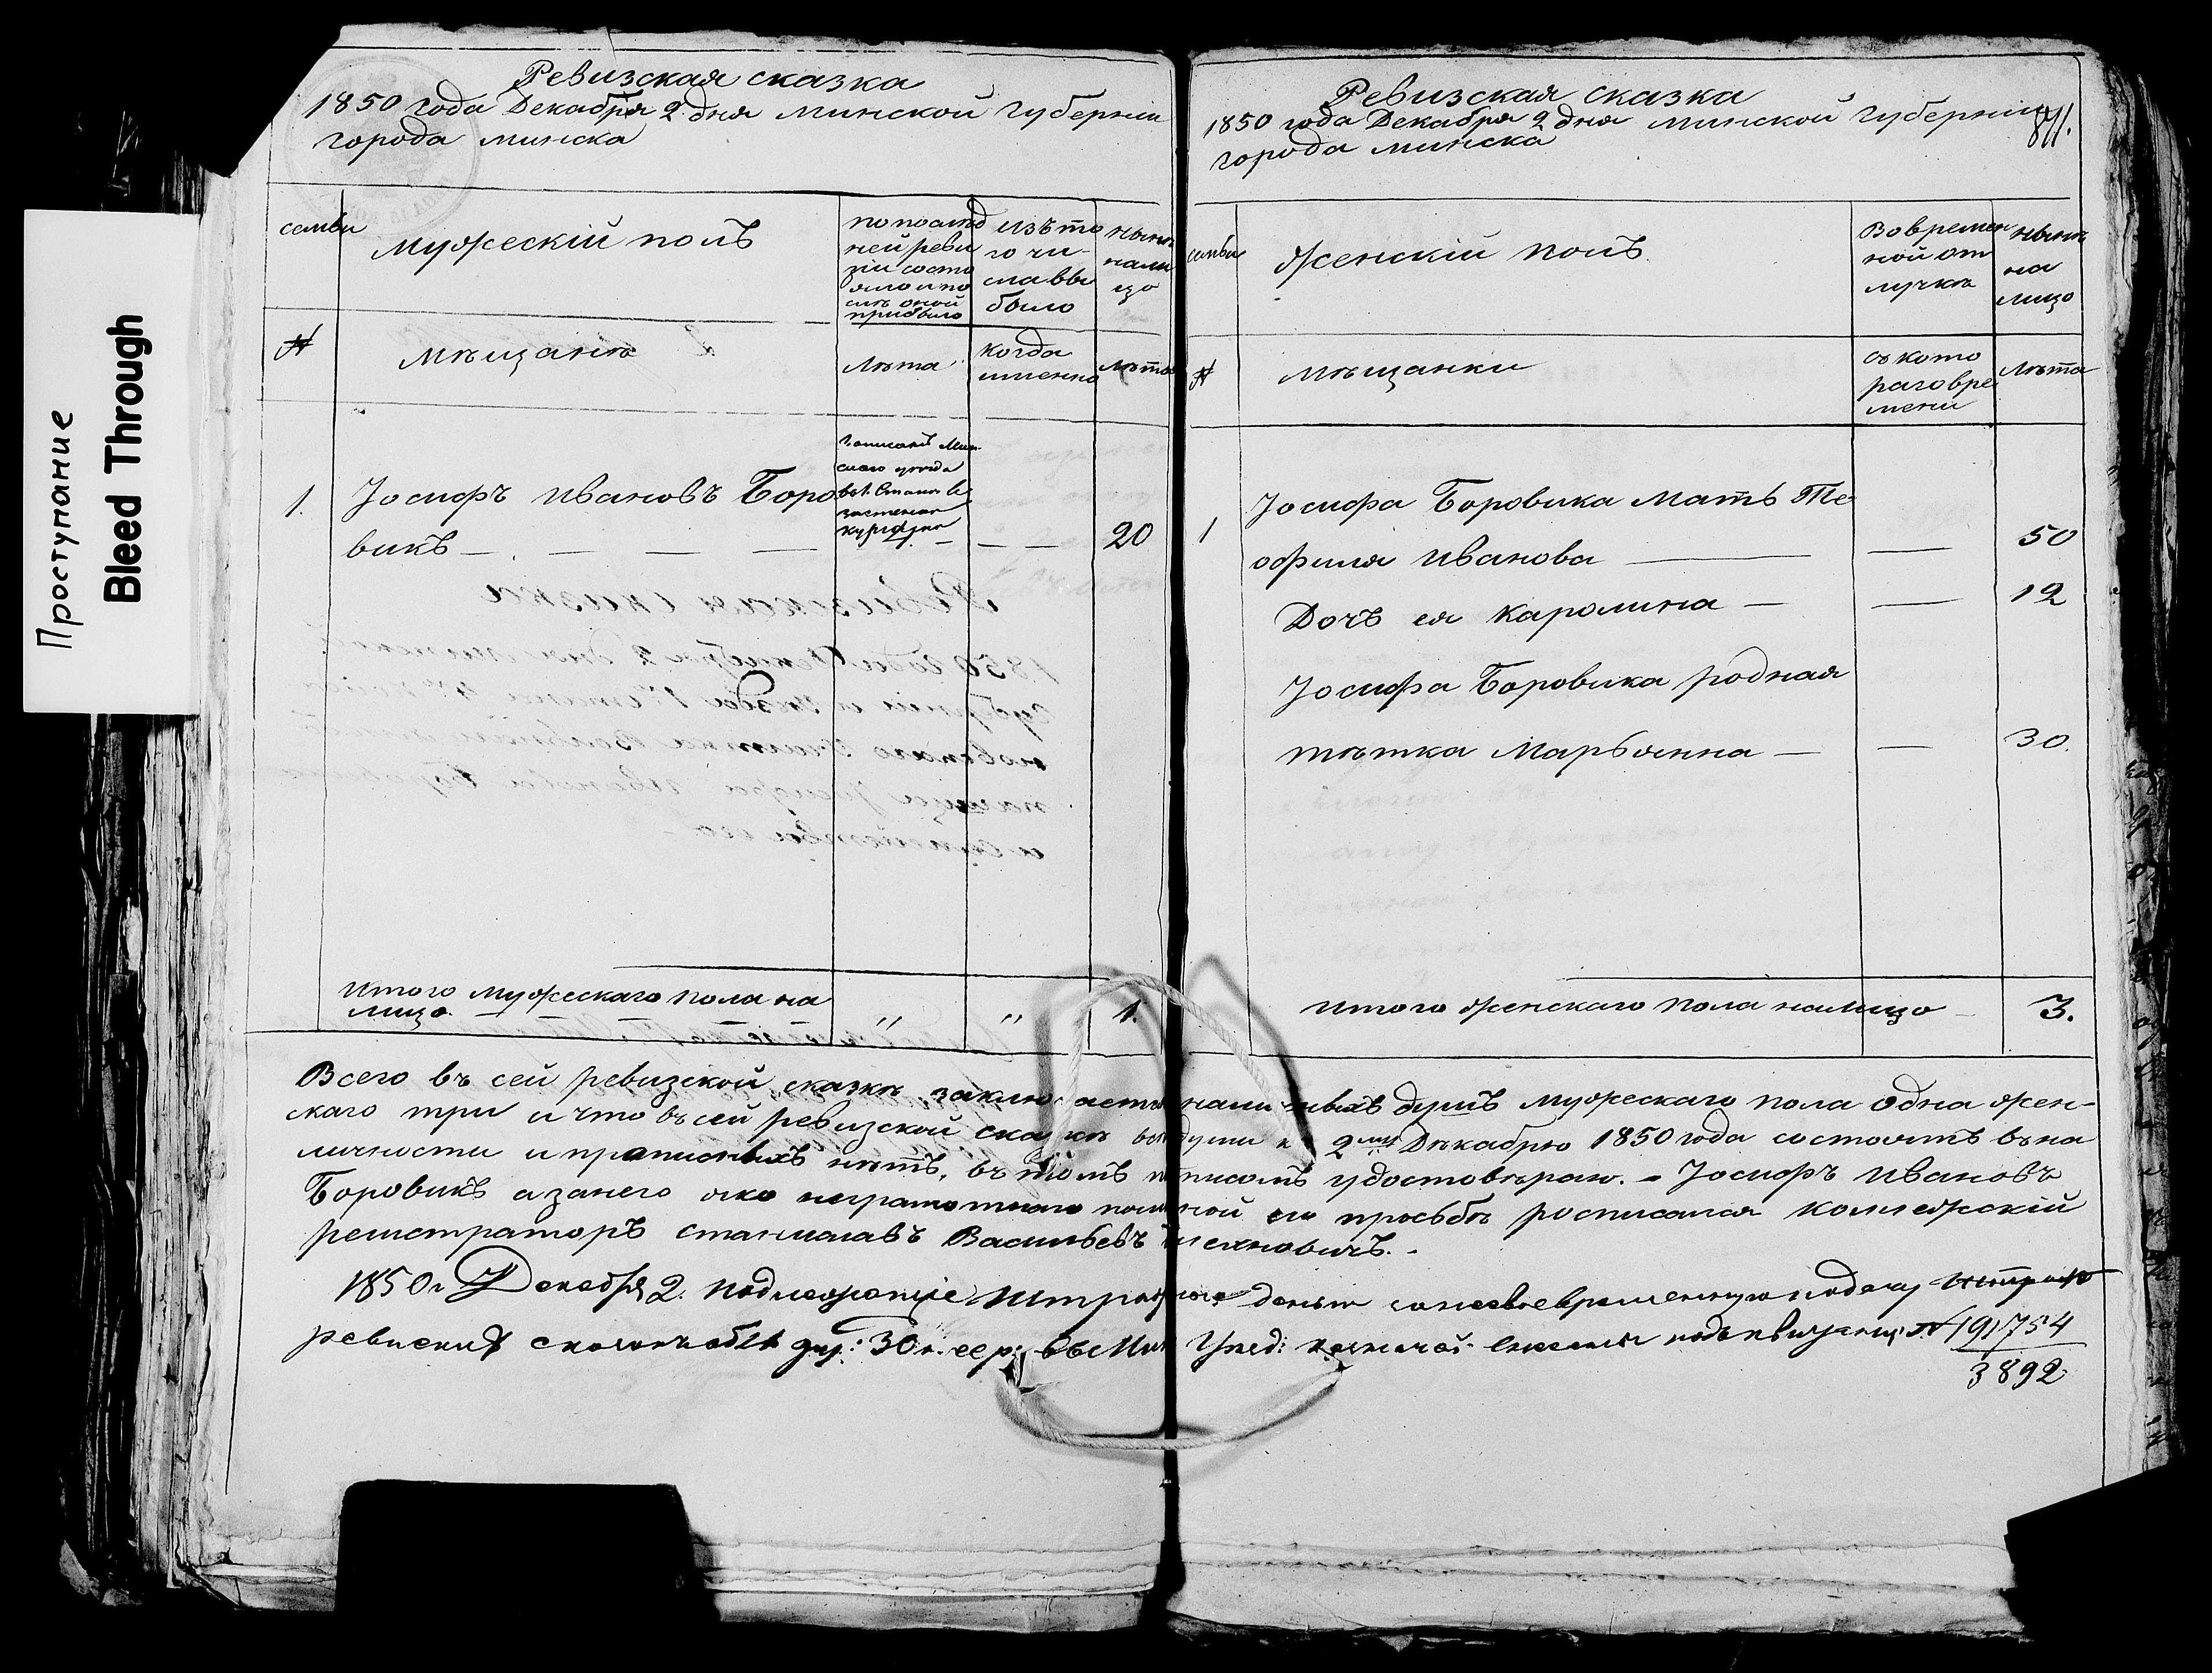 Проступание
Bleed Through
Ревизская сказка
1850 года Декабря 2 дня Минской Губерніи
города Минска
семьи
Мужескій полъ
по послѣд
ней реви
зіи состо
яло и по
слѣ оной
прибыло
изъ то
го чи-
сла вы
было
нынѣ
нали
цо
№
Мѣщанѣ
Лѣта
когда
именно
Лѣта
1.
Іосифъ Ивановъ Боро
викъ
20
Итого мужескаго пола на
лицо
"
"
1.
Ревизская сказка
1850 года Декабря 2 дня Минской Губерніи
города Минска
811.
семьи
Женскій полъ
Во времен
ной от
лучкѣ
нынѣ
на
лицо
№
Мѣщанки
съ кото
раго вре
мени
Лѣта
1
Іосифа Боровика мать Те
офиля Иванова
50
Дочъ ея Каролина
12
Іосифа Боровика родная
тѣтка Марьянна
30.
Итого женскаго пола налицо
3.
Всего въ сей ревизской сказкѣ заключается наличныхъ душъ мужескаго пола одна жен-
скаго три и что въ сей ревизской сказкѣ всѣ души къ 2му Декабрю 1850 года состоятъ въ на
личности и прописныхъ нѣтъ, въ томъ подписомъ удостовѣряю. - Іосифъ Ивановъ
Боровикъ а за него яко неграмотнаго по личной его просьбѣ росписался Коллежскій
регистраторъ Станиславъ Васильевъ
1850 г Декабря 2. подлежащіе штрафные деньги за несвоевременную подачу
ревиской сказки 30 к. сер: въ Мин Уезд: казначей: внесены подъ квитанц: № 191754
3892